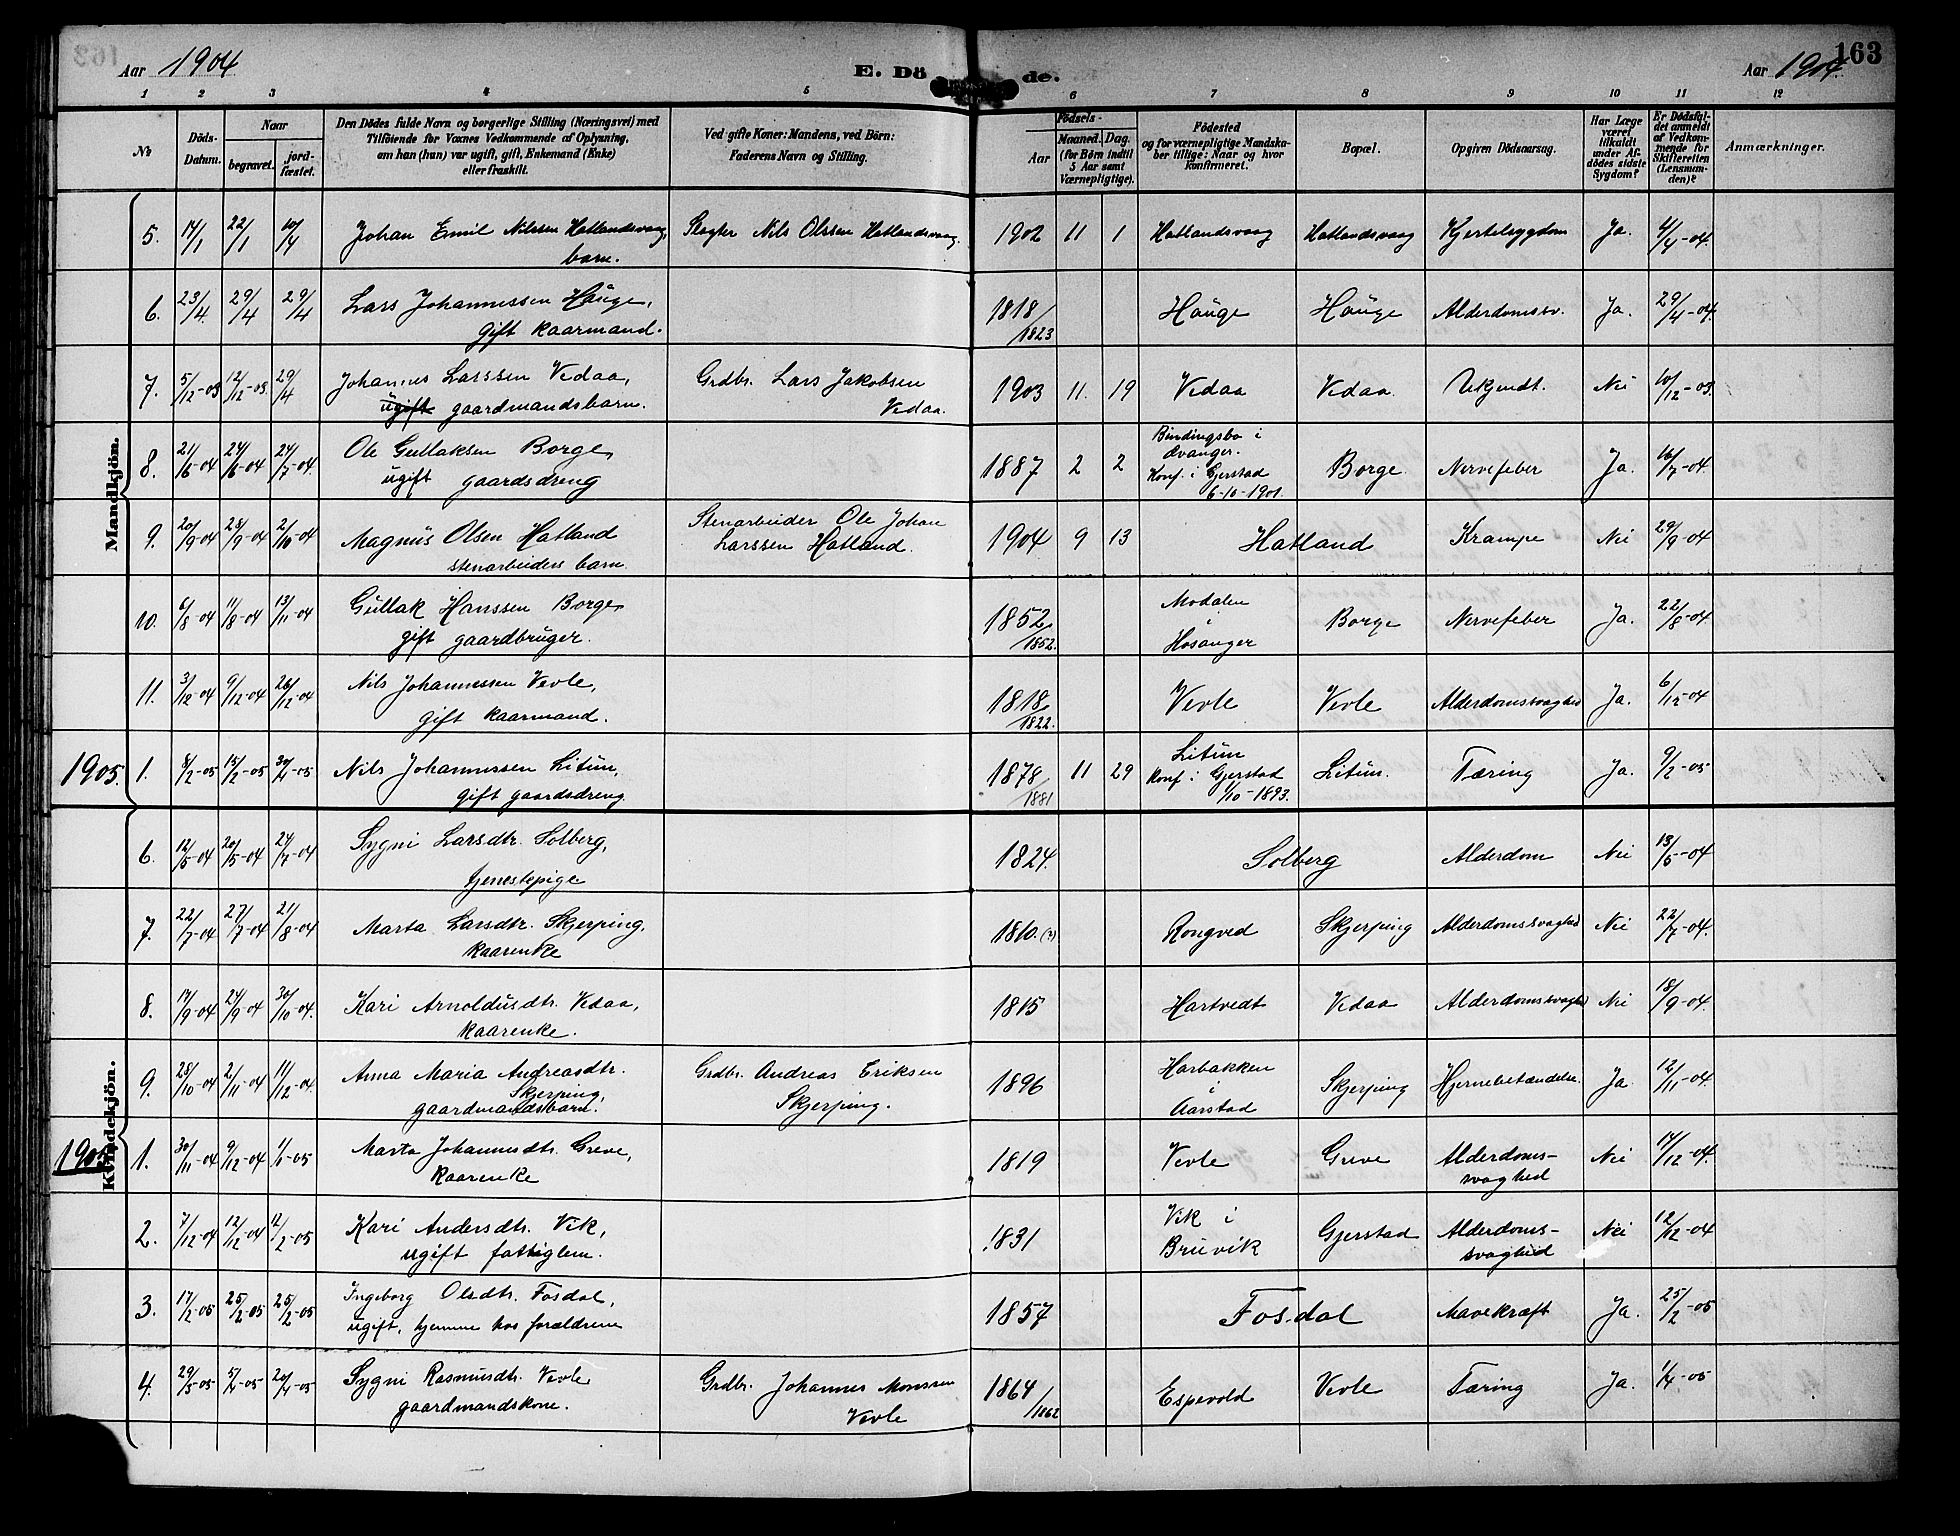 Aar 1904
E. Døde.
163
Aar 1904.
1 2 3 4 5 6 7 8 9 10 11 12
No
Döds-Datum.
Naar
begravet.
jord-fæstet.
Den Dödes fulde Navn og borgerlige Stilling (Næringsvei) med
Tilföiende for Voxnes Vedkommende af Oplysning,
om han (hun) var ugift, gift, Enkemand (Enke)
eller fraskilt.
Ved gifte Koner: Mandens, ved Börn:
Faderens Navn og Stilling.
Födsels-
Aar
Maaned. Dag.
(for Börn indtil
5 Aar samt
Værnepligtige).
Födested
og for værnepligtige Mandska-
ber tillige: Naar og hvor
konfirmeret.
Bopæl.
Opgiven Dödsaarsag.
Har Læge
været
tilkaldt
under Af-
dödes sidste
Sygdom?
Er Dödsfal-
det anmeldt
af Vedkom-
mende for
Skifteretten
(Lensman-
den)?
Anmærkninger.
Mandkjön.
5. 17/1 22/1 10/4 Johan Emil Nilssen Hatlandsvaag, Slagter Nils Olssen Hatlandsvaag. 1902 11 1 Hatlandsvaag Hatlandsvaag Kjertelsygdom Ja. 4/4-04.
barn.
6. 23/4. 29/4 29/4 Lars Johannessen Hauge, 1818/1823 Hauge Hauge Alderdomssv. Ja. 29/4-04.
gift kaarmand.
7. 5/12-03 12/12-03. 29/4 Johannes Larssen Vedaa, Grdbr. Lars Jakobsen 1903 11. 19 Vedaa Vedaa. Ukjendt. Nei 10/12-03.
ugift gaardmandsbarn. Vedaa.
8. 21/6-04 24/6-04 24/7-04. Ole Gullaksen Borge, 1887 2 2 Bindingsbø i
Evanger.
Konf. i Gjerstad
6-10-1901. Borge Nervefeber Ja. 16/7-04.
ugift gaardsdreng
9. 20/9-04 28/9-04 2/10-04 Magnus Olsen Hatland Stenarbeider Ole Johan
Larssen Hatland. 1904 9 13 Hatland Krampe Nei 29/9-04
stenarbeiders barn.
10. 6/8-04 11/8-04 13/11-04 Gullak Hanssen Borge, 1852/1852. Modalen
Hosanger Borge Nervefeber Ja. 22/8-04
gift gaardbruger.
11. 3/12-04 9/12-04 26/12-04 Nils Johannessen Vevle, 1818/1822. Vevle Vevle Alderdomssvaghed Ja. 6/12-04
gift kaarmand.
1905. 1. 8/2-05 15/2-05 30/4-05 Nils Johannessen Litun, 1878/1881 11 29 Litun
Konf. i Gjerstad
1/10-1893. Litun. Tæring Ja. 9/2-05
gift gaardsdreng.
Kvindekjön.
6. 12/5-04 20/5-04 24/7-04 Sygni Larsdtr. Solberg, 1824. Solberg Alderdom Nei 13/5-04
tjenestepige
7. 22/7-04 27/7-04 21/8-04 Marta Larsdtr. Skjerping, 1810.(?) Rongved Skjerping Alderdomssvaghed Nei 22/7-04.
kaarenke
8. 17/9-04 24/9-04 30/10-04. Kari Arnoldusdtr. Vedaa, 1815 Hartvedt Vedaa Alderdomssvaghed Nei 18/9-04.
kaarenke.
9. 28/10-04 2/11-04 11/12-04. Anna Maria Andreasdtr.
Skjerping,
gaardmandsbarn. Grdbr. Andreas Eriksen
Skjerping. 1896 Harbakken
i
Aarstad Skjerping Hjernebetændelse. Ja. 12/11-04
1905 1. 30/11-04 9/12-04 1/1-05 Marta Johannesdtr. Greve, 1819 Vevle Greve Alderdoms-
svaghed Nei 17/12-04.
kaarenke
2. 7/12-04 12/12-04 12/2-05 Kari Andersdtr. Vik, 1831 Vik i
Bruvik Gjerstad Alderdoms-
svaghed Nei 12/12-04
ugift fattiglem.
3. 17/2-05 25/2-05 25/2-05 Ingeborg Olsdtr. Fosdal, 1857 Fosdal Mavekræft Ja. 25/2-05
ugift, hjemme hos forældrene
4. 29/3-05 5/4-05 20/4-05 Sygni Rasmusdtr. Vevle Grdbr. Johannes Monssen
Vevle 1864/1862 Espevold Vevle Tæring Ja. 1/4-05
gaardmandskone.